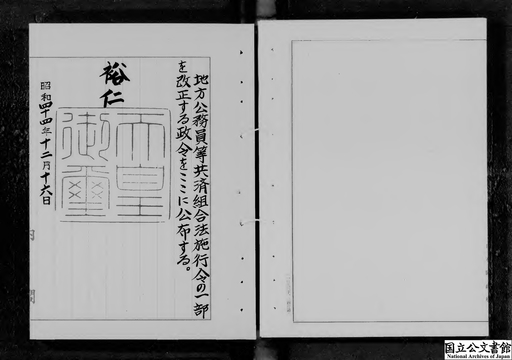 地方公務員等共済組合法施行令の一部
を改正する政令をここに公布する。
裕仁
天皇御璽
昭和四十四年十二月十六日
国立公文書館
National Archives of Japan